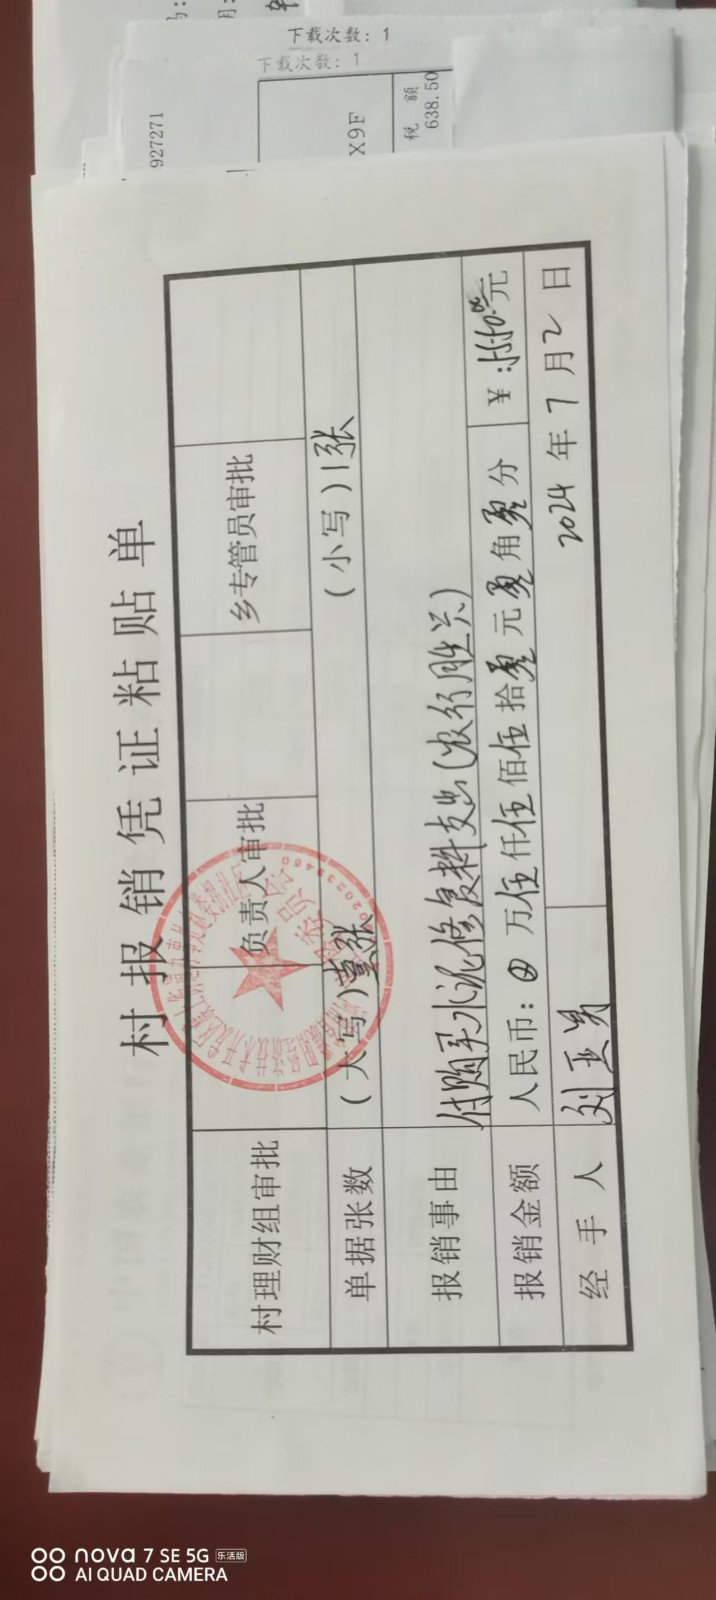 下载次数：1
下载次数：1
927271
X9F
税 额
638.50
村报销凭证粘贴单
村理财组审批 负责人审批 乡专管员审批
单据张数 （大写）壹张 （小写）1张
报销事由 付购买水泥修复料支出（农行胜兴）
报销金额 人民币：⊕万伍仟伍佰伍拾零元零角零分 ￥：5550.00元
经手人 刘 2024年7月2日
nova 7 SE 5G 乐活版
AI QUAD CAMERA